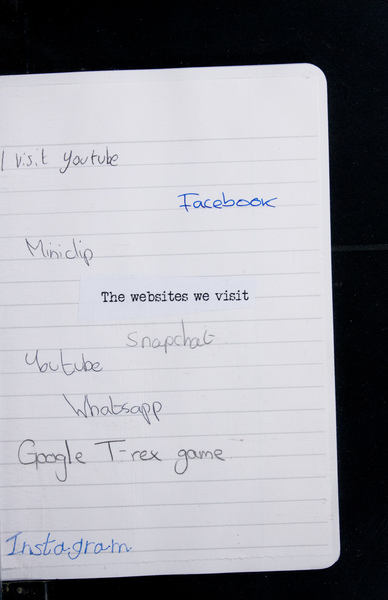 I visit youtube
Facebook
Miniclip
The websites we visit
snapchat
Youtube
Whatsapp
Google T-rex game
Instagram